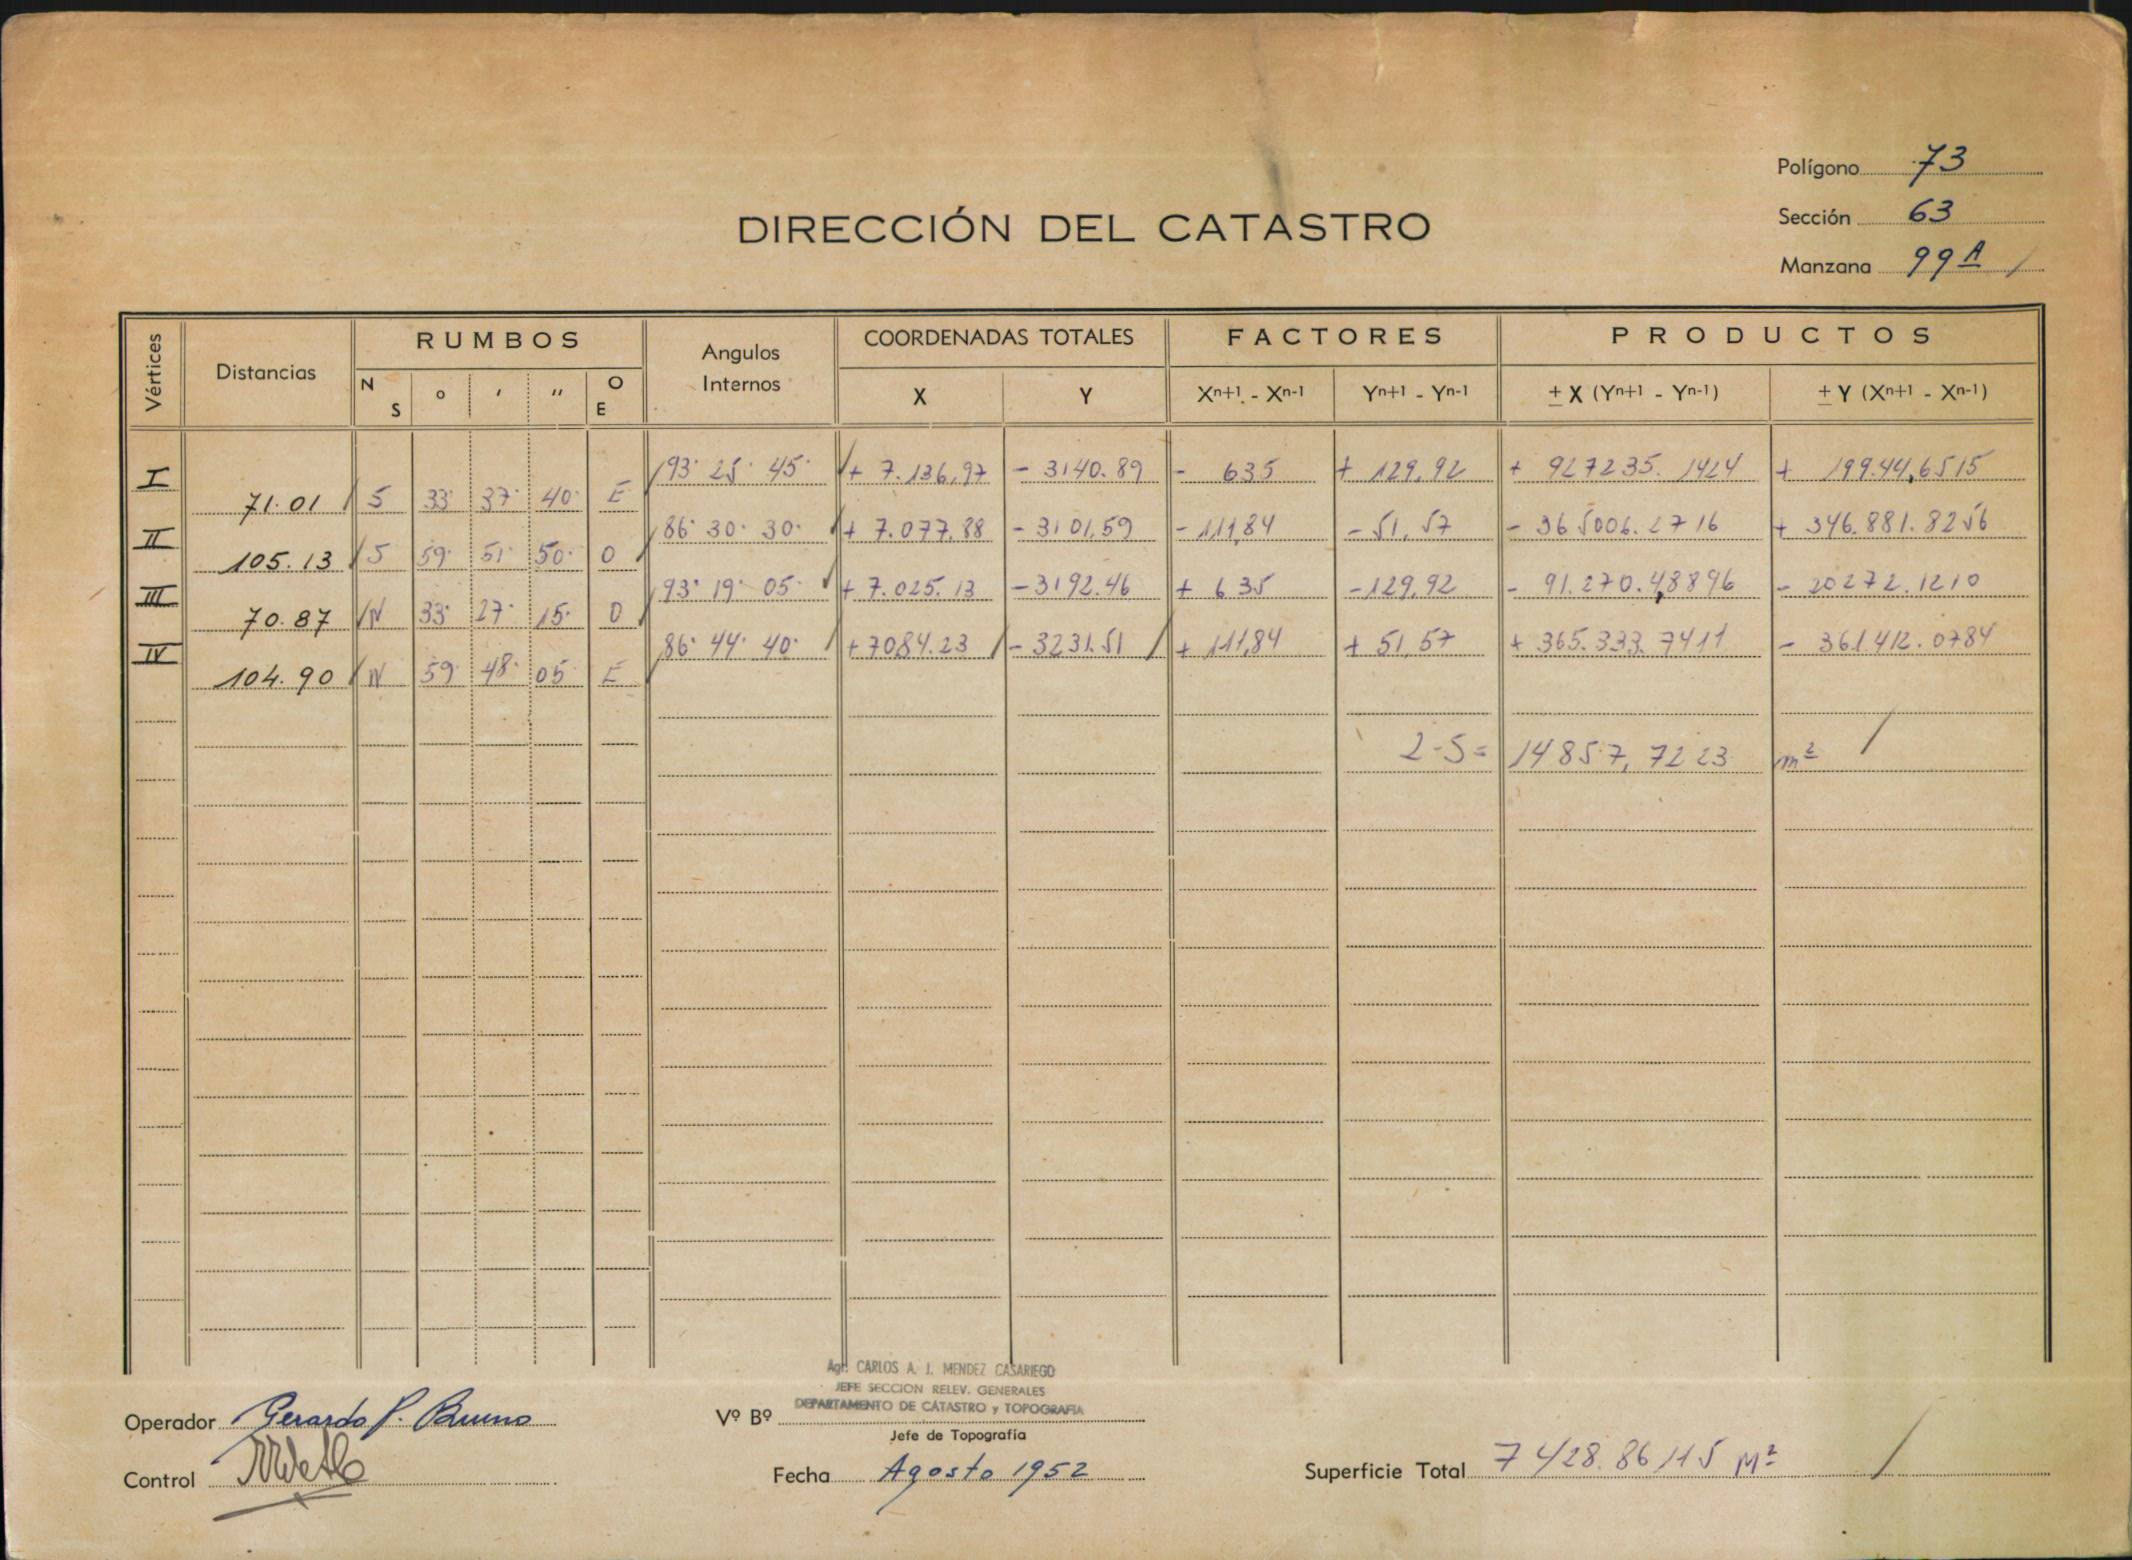 Polígono 73
Sección 63
Manzana 99 A
DIRECCIÓN DEL CATASTRO
Vértices Distancias RUMBOS Angulos Internos COORDENADAS TOTALES FACTORES PRODUCTOS
N S ° ' " O E X Y Xn+1 - Xn-1 Yn+1 - Yn-1 ± X (Yn+1 - Yn-1) ± Y (Xn+1 - Xn-1)
I 93° 25' 45" + 7.136,97 - 3140.89 - 635 + 129,92 + 927235.1424 + 199.44,6515
71.01 S 33° 37' 40" E
II 86° 30' 30" + 7.077,88 - 3101,59 - 111,84 - 51,57 - 365006.2716 + 346.881.8256
105.13 S 59° 51' 50" O
III 93° 19' 05" + 7.025.13 - 3192.46 + 635 - 129,92 - 91.270.4,8896 - 20272.1210
70.87 N 33° 27' 15" O
IV 86° 44' 40" + 7084.23 - 3231.51 + 111,84 + 51,57 + 365.333.7411 - 361.412.0784
104.90 N 59° 48' 05" E
2-S = 14857,7223 m²
Agr. CARLOS A. J. MENDEZ CASARIEGO
JEFE SECCION RELEV. GENERALES
DEPARTAMENTO DE CATASTRO y TOPOGRAFIA
Operador Gerardo P. Bruno Vº Bº
Jefe de Topografía
Control Fecha Agosto 1952 Superficie Total 7428.86115 M²